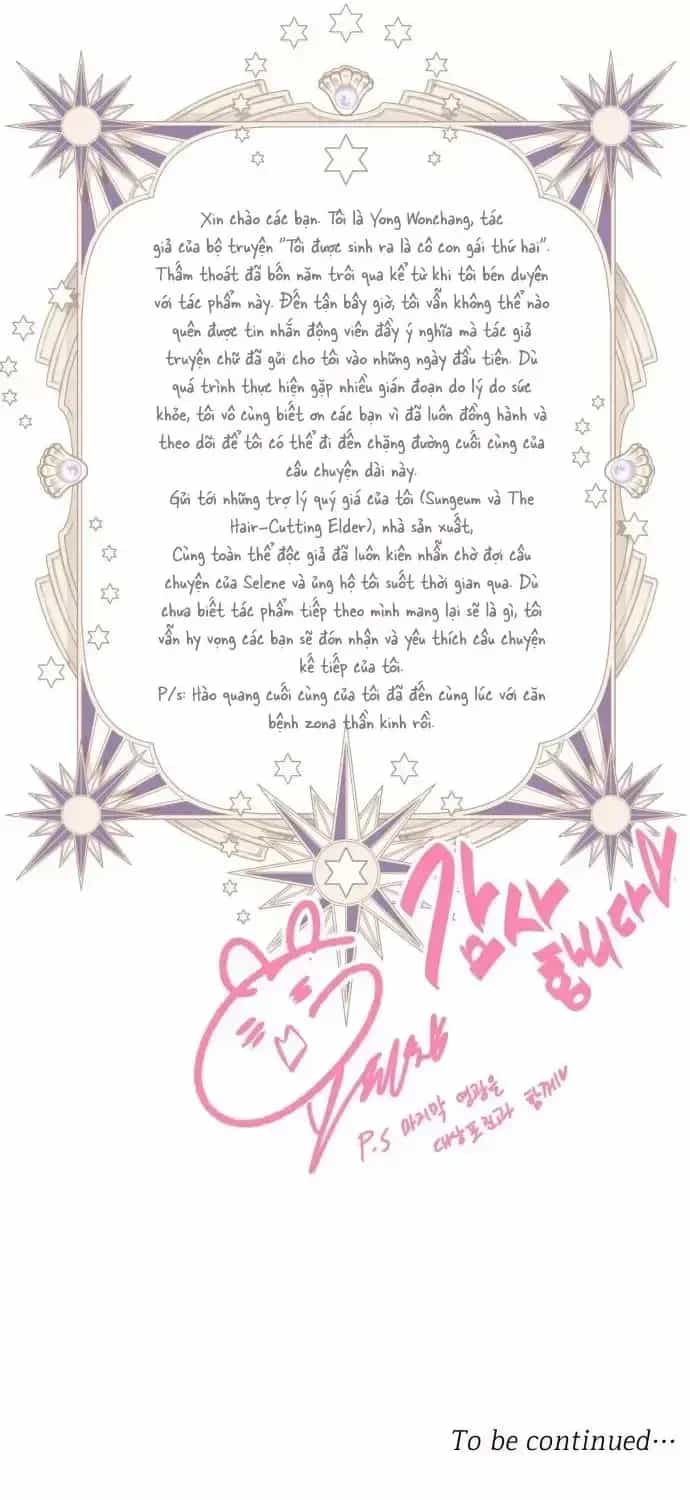 Xin chào các bạn. Tôi là Yong Wonchang, tác
giả của bộ truyện "Tôi được sinh ra là cô con gái thứ hai".
Thấm thoát đã bốn năm trôi qua kể từ khi tôi bén duyên
với tác phẩm này. Đến tận bây giờ, tôi vẫn không thể nào
quên được tin nhắn động viên đầy ý nghĩa mà tác giả
truyện chữ đã gửi cho tôi vào những ngày đầu tiên. Dù
quá trình thực hiện gặp nhiều gián đoạn do lý do sức
khỏe, tôi vô cùng biết ơn các bạn vì đã luôn đồng hành và
theo dõi để tôi có thể đi đến chặng đường cuối cùng của
câu chuyện dài này.
Gửi tới những trợ lý quý giá của tôi (Sungeum và The
Hair-Cutting Elder), nhà sản xuất,
Cùng toàn thể độc giả đã luôn kiên nhẫn chờ đợi câu
chuyện của Selene và ủng hộ tôi suốt thời gian qua. Dù
chưa biết tác phẩm tiếp theo mình mang lại sẽ là gì, tôi
vẫn hy vọng các bạn sẽ đón nhận và yêu thích câu chuyện
kế tiếp của tôi.
P/s: Hào quang cuối cùng của tôi đã đến cùng lúc với căn
bệnh zona thần kinh rồi.
감사
합니다♡
P.S 마지막 영광을
대상포진과 함께♡
To be continued...